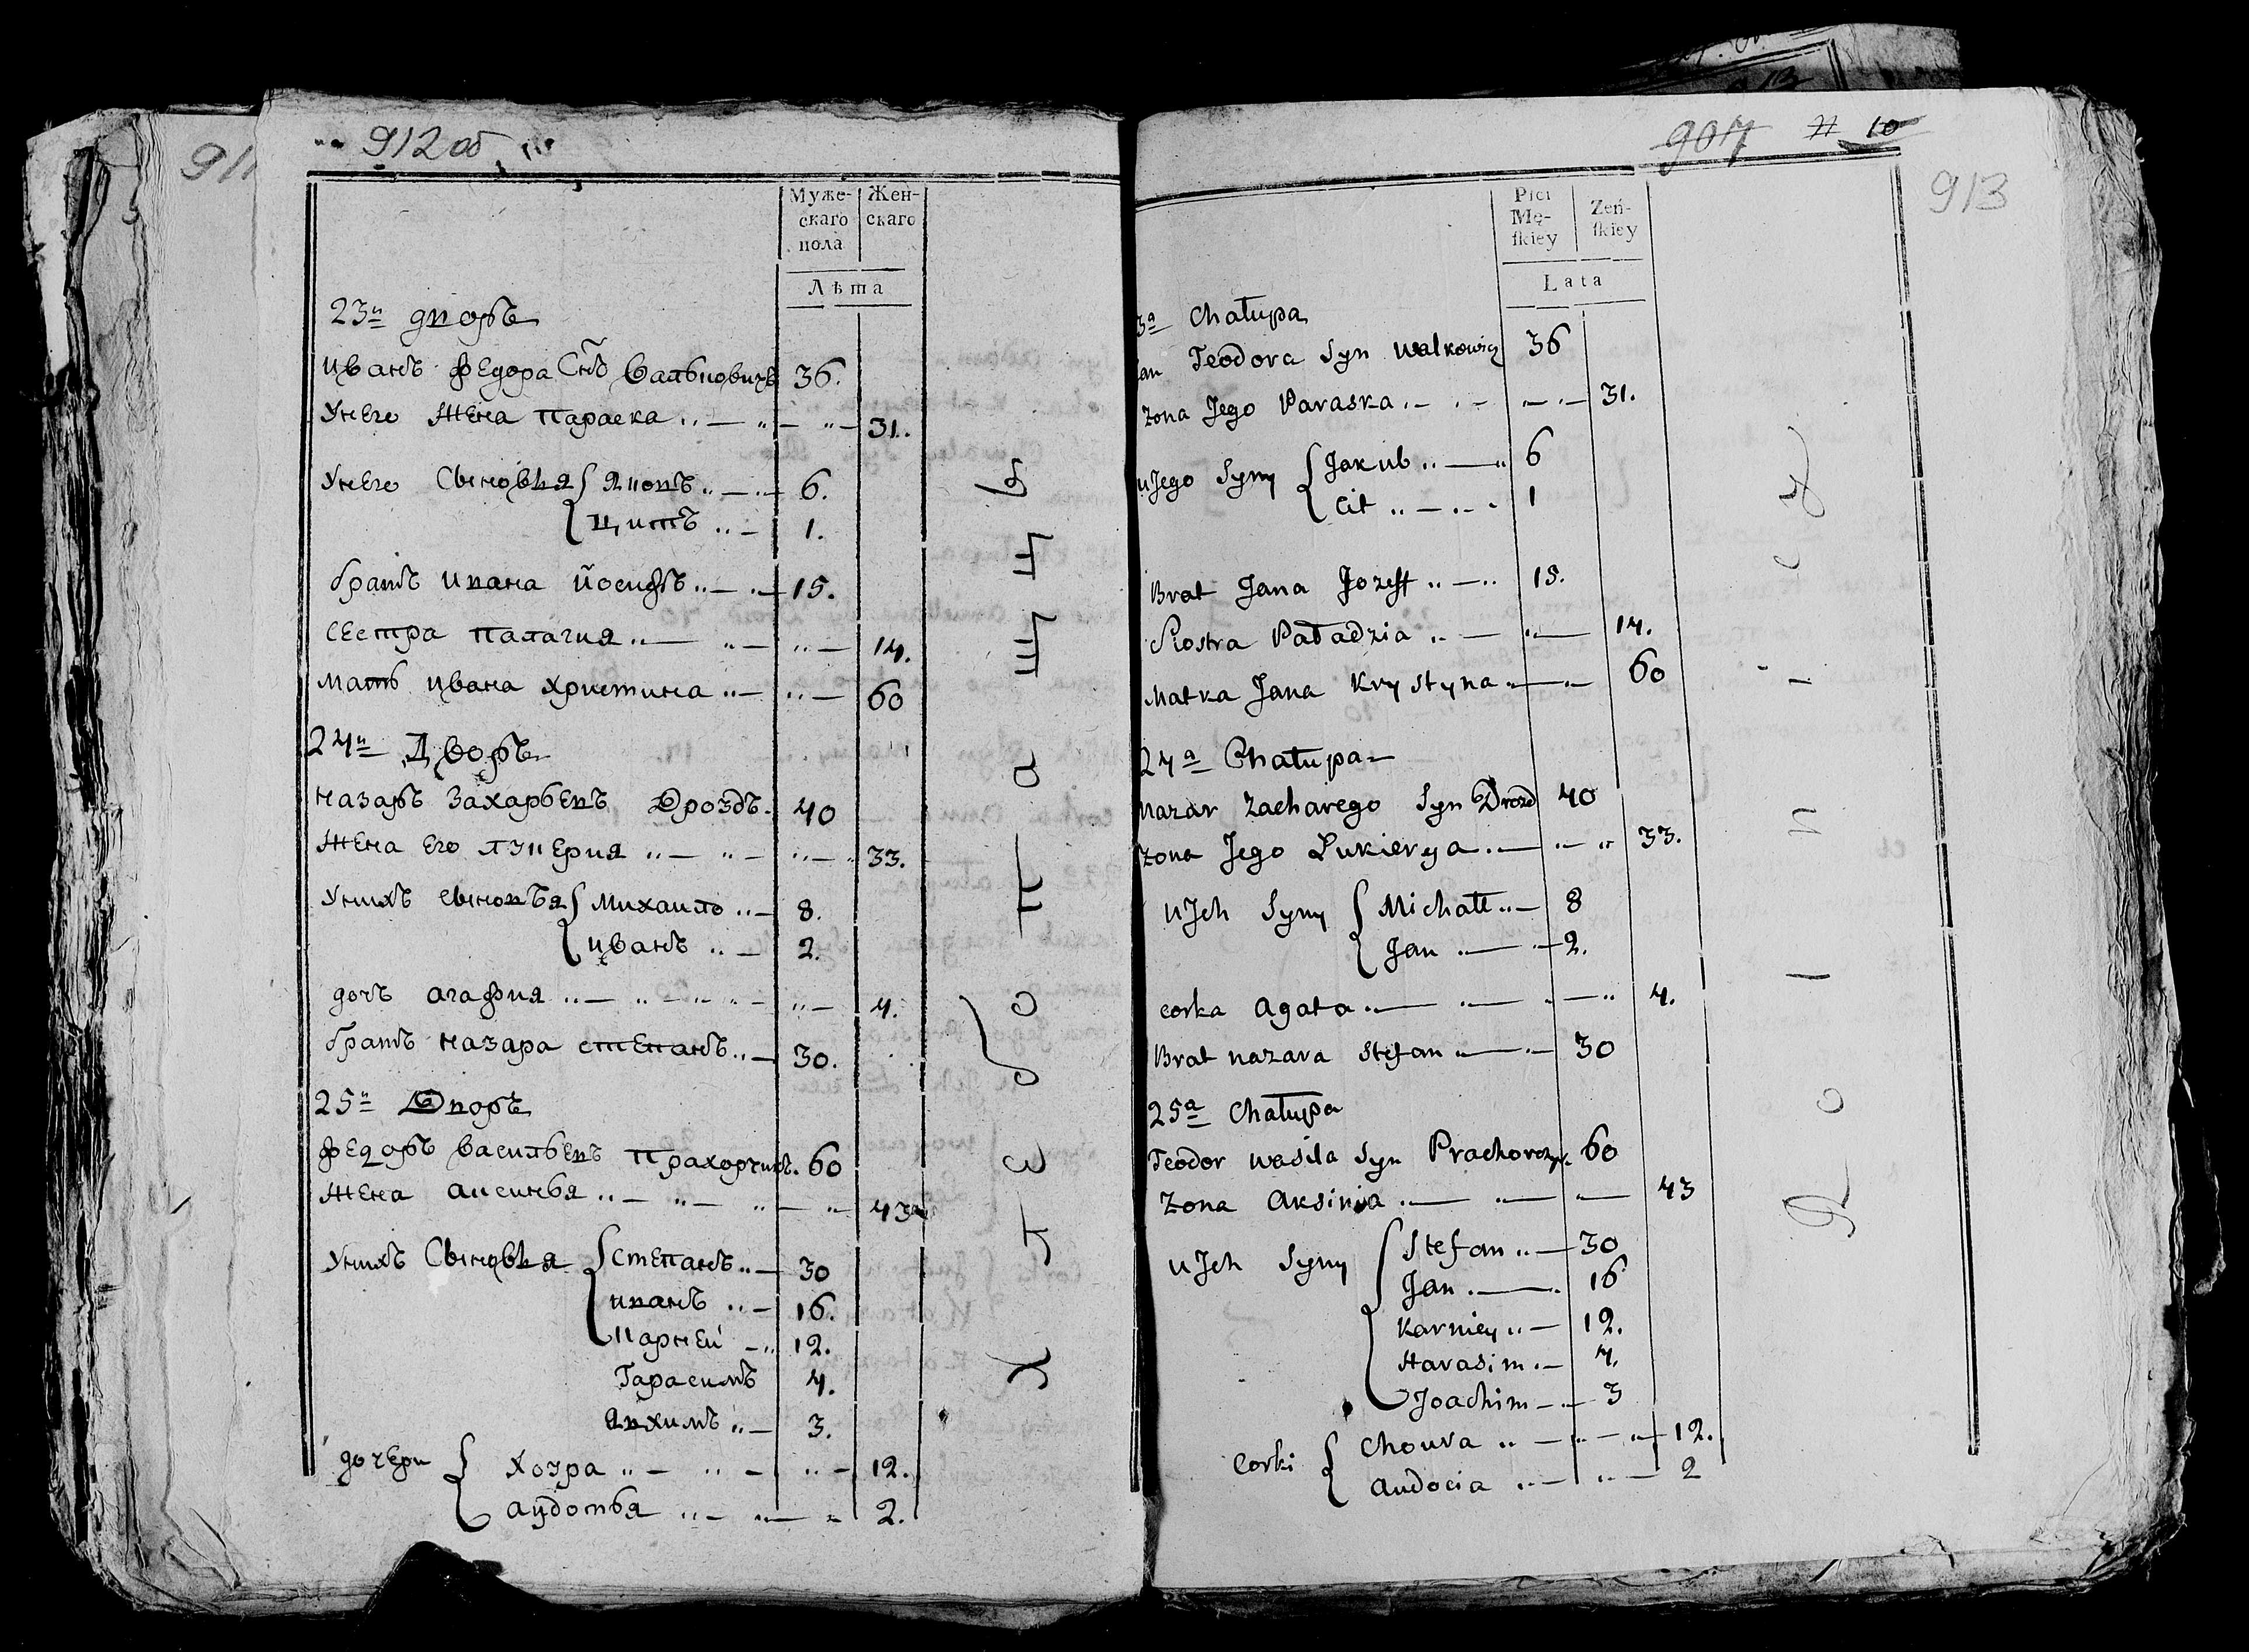 912 об
Муже-
скаго
пола
Жен-
скаго
Лѣта
23й дворъ
Иванъ Федора Снъ Вальковичъ 36.
У него жена Параска 31.
У него Сыновья { Якопъ 6.
{ Цитъ 1.
братъ Ивана Йосифъ 15.
Сестра Палагия 14.
мать Ивана Христина 60
24й Дворъ
Назаръ Захарьевъ Дроздъ. 40
Жена его Лукерия 33.
У нихъ сыновья { Михаило 8.
{ Иванъ 2.
дочь Агафия 4.
братъ Назара Степанъ 30.
25й Дворъ
Федоръ Васильевъ Прахорчикъ. 60
Жена Аксинья 43
У нихъ Сыновья { Степанъ 30
Иванъ 16.
Карней 12.
Гарасимъ 4.
Яхимъ 3.
дочери { Хоура 12.
Аудотья 2.
907 10
913
Płci
Mę-
skiey
Żeń-
skiey
Lata
3a Chałupa
an Teodora Syn Walkowicz 36
Zona Jego Paraska 31.
u Jego Syny { Jakub 6
Cit 1
Brat Jana Jozeff 15.
Siostra Paładzia 14.
Matka Jana Krystyna 60
24a Chałupa
Nazar Zacharego Syn Drozd 40
Zona Jego Łukierya 33.
u Jch Syny { Michałł 8
Jan 2.
corka Agata 4.
Brat Nazara Stefan 30
25a Chałupa
Teodor Wasila Syn Prachorczyk. 60
Zona Aksinia 43
u Jch Syny { Stefan 30
Jan 16
Karniey 12.
Harasim 4.
Joachim 3
Corki { Choura 12.
Audocia 2